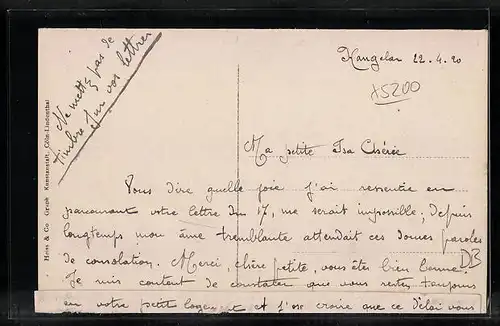 Ne mettez pas de
timbre sur vos lettres
Hangelar 22.4.20
x5200
Ma petite Isa Chérie
Vous dire quelle joie j'ai ressentie en
parcourant votre lettre du 17, me serait impossible, depuis
longtemps mon âme tremblante attendait ces douces paroles
de consolation. Merci, chère petite, vous êtes bien bonne.
DB
Je suis content de constater que vous restez toujours
en votre petit et j'ose croire que ce délai vous
Heiss & Co Graph Kunstanstalt, Cöln-Lindenthal